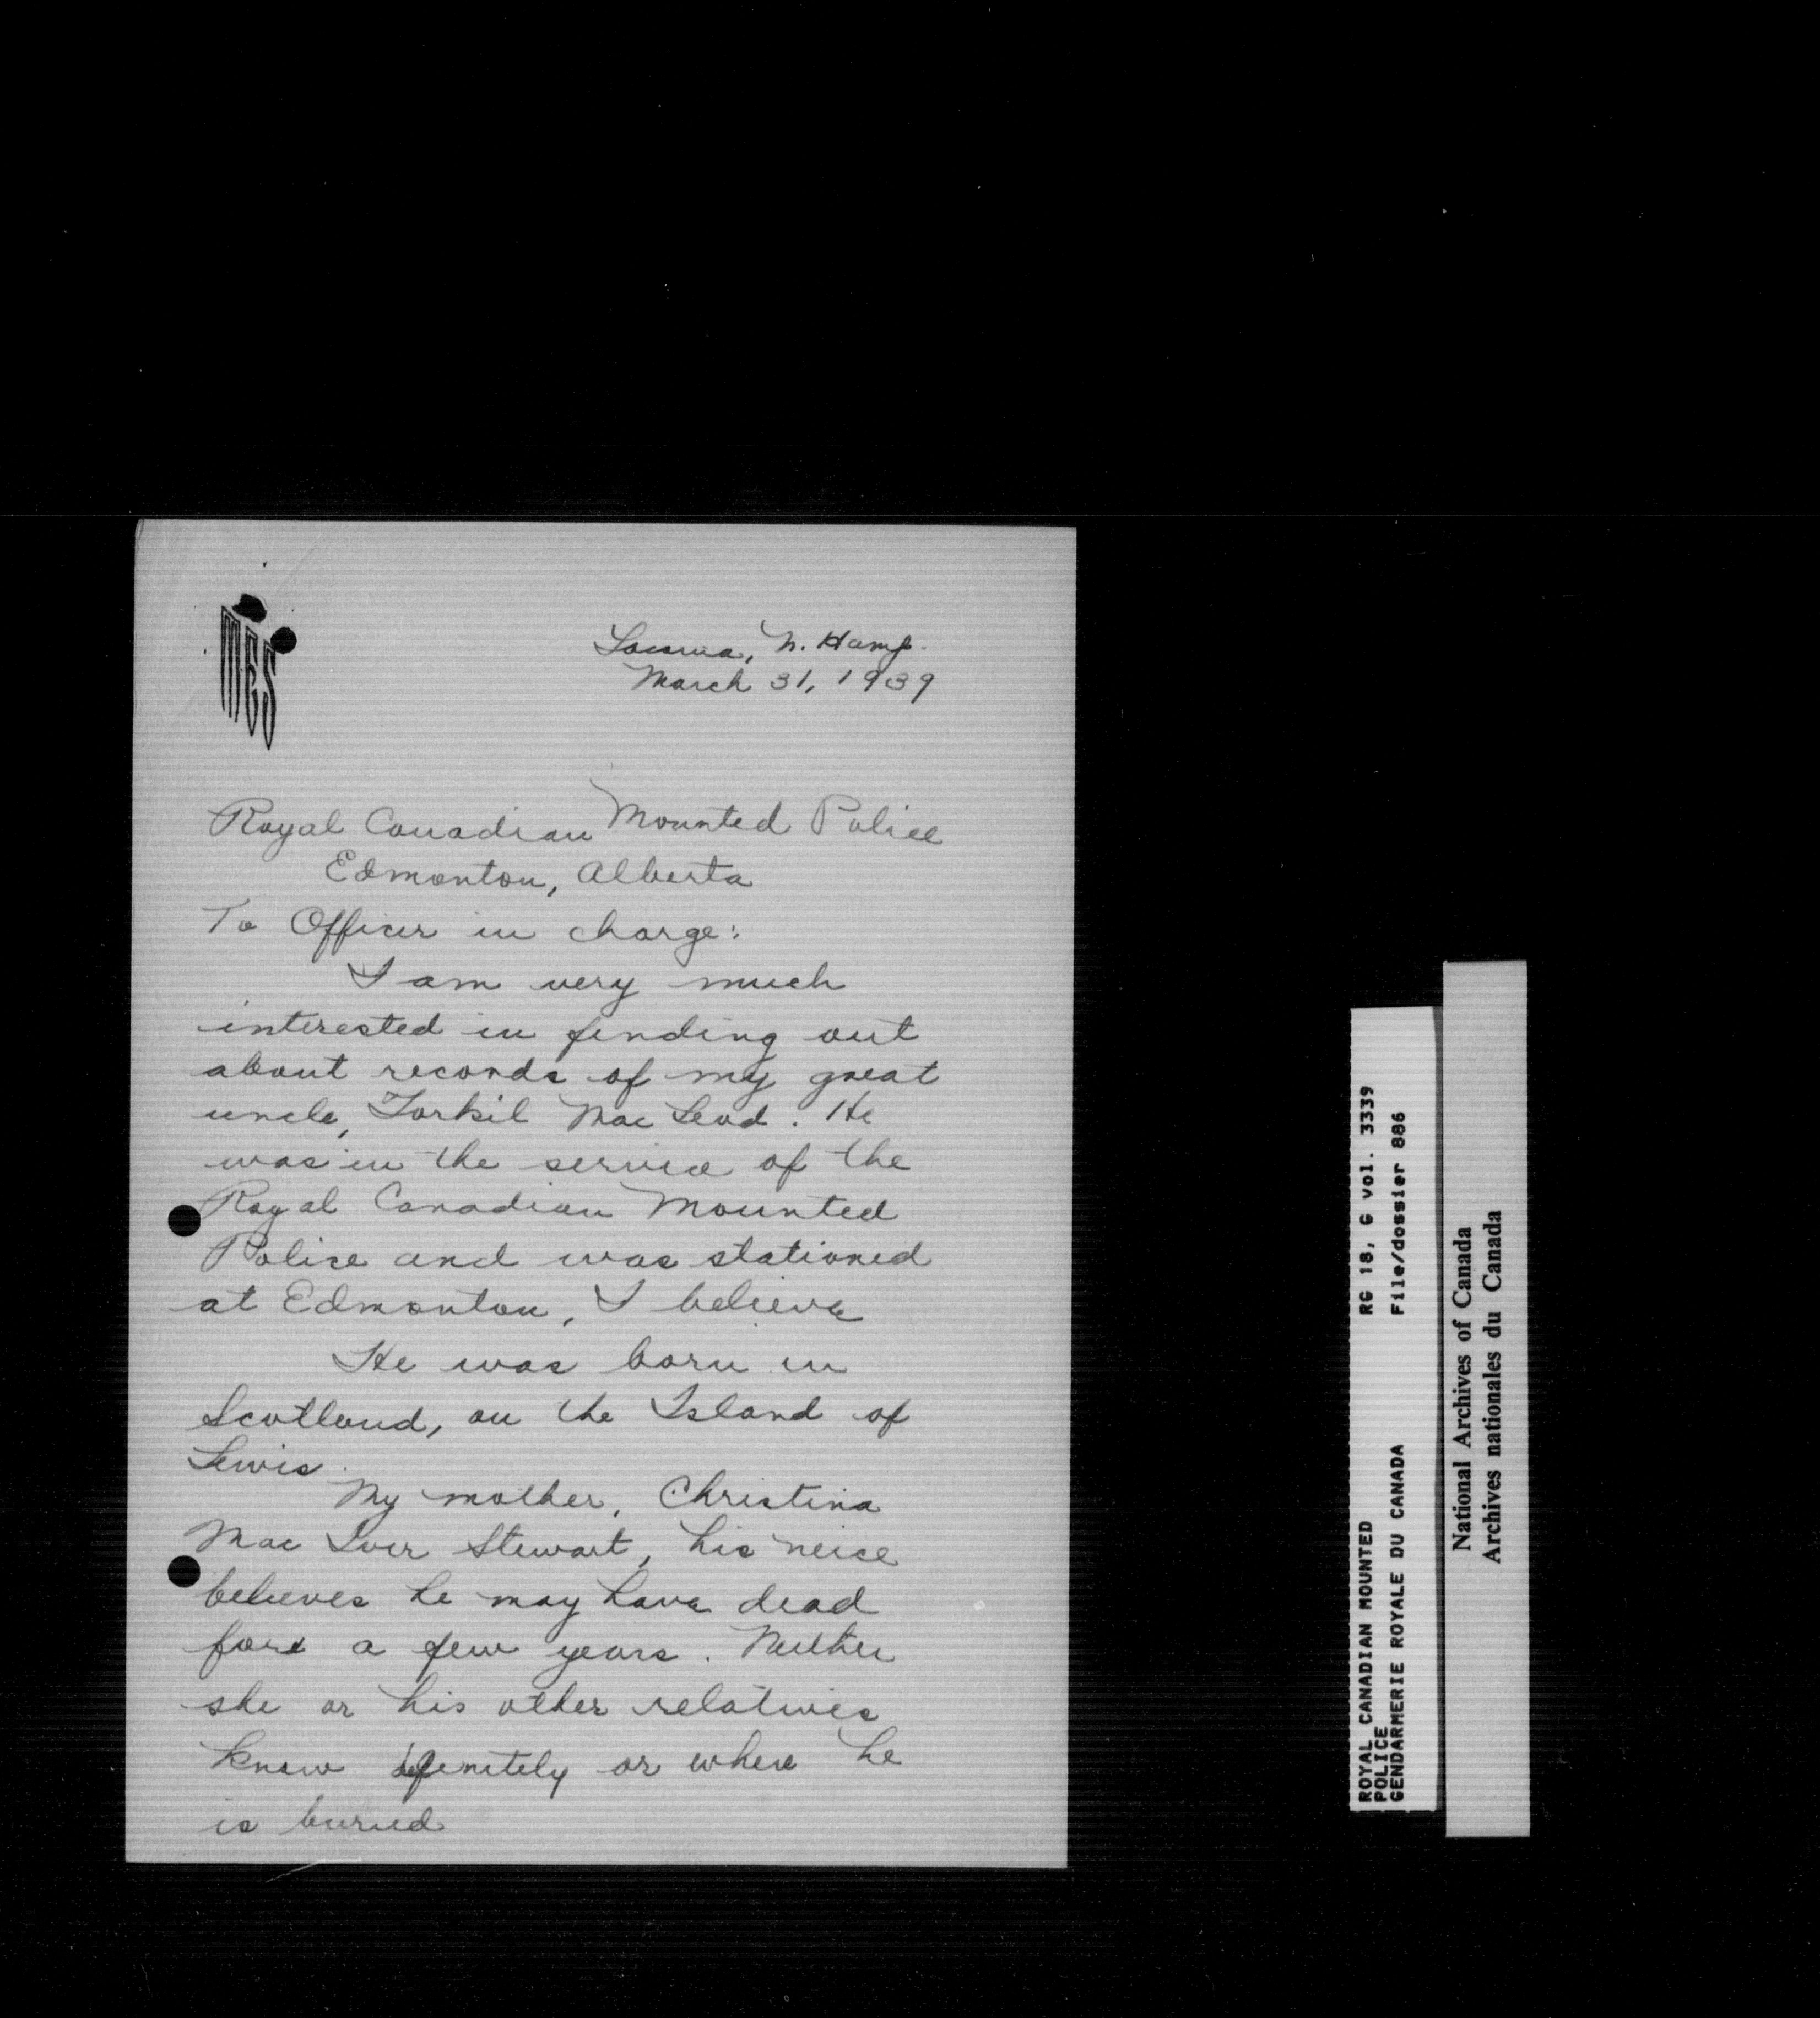 MES
Laconia, N. Hamp.
March 31, 1939
Royal Canadian Mounted Police
Edmonton, Alberta
To Officer in charge:
I am very much
interested in finding out
about records of my great
uncle, Torkil Mac Leod. He
was in the service of the
Royal Canadian Mounted
Police and was stationed
at Edmonton, I believe
He was born in
Scotland, on the Island of
Lewis.
My mother, Christina
Mac Iver Stewart, his neice
believes he may have dead
for a few years. Neither
she or his other relatives
know definitely or where he
is buried
ROYAL CANADIAN MOUNTED RG 18, G vol. 3339
POLICE
GENDARMERIE ROYALE DU CANADA File/dossier 886
National Archives of Canada
Archives nationales du Canada